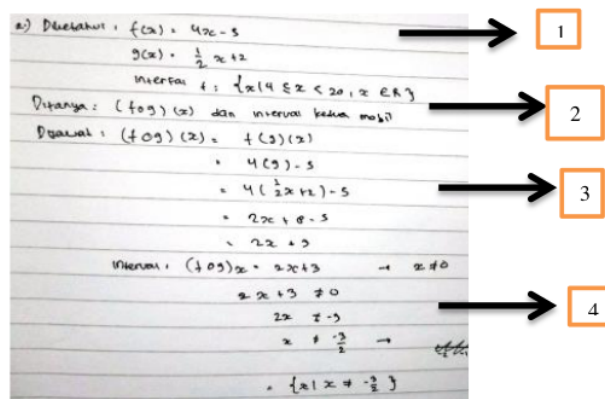 a) Diketahui : f(x) = 4x - 5
1
g(x) = 1/2 x + 2
interval f : {x | 4 ≤ x < 20, x ∈ R}
Ditanya : (fog)(x) dan interval kedua mobil
2
Dijawab : (fog)(x) = f(g)(x)
= 4(g) - 5
= 4(1/2x + 2) - 5
3
= 2x + 8 - 5
= 2x + 3
Interval : (fog)x = 2x + 3 → x ≠ 0
2x + 3 ≠ 0
4
2x ≠ -3
x ≠ -3/2 →
= {x | x ≠ -3/2}